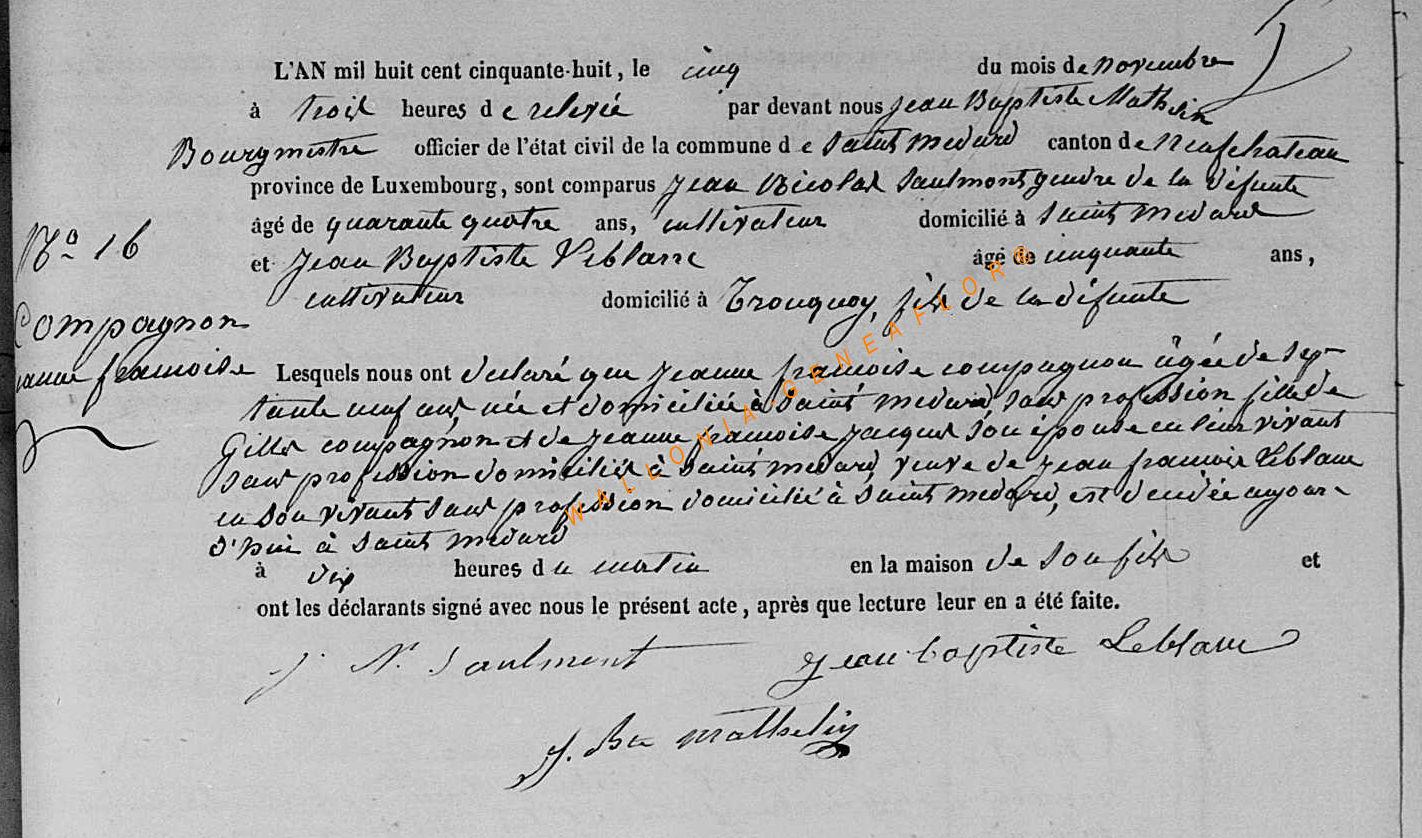 L'AN mil huit cent cinquante-huit, le cinq du mois de novembre
à trois heures de relevée par devant nous Jean Baptiste Mathelin
Bourgmestre officier de l'état civil de la commune de Saint Medard canton de Neufchateau
province de Luxembourg, sont comparus Jean Nicolas Saulmont gendre de la défunte
âgé de quarante quatre ans, cultivateur domicilié à Saint Medard
et Jean Baptiste Leblanc âgé de cinquante ans,
cultivateur domicilié à Trouquoy, fils de la défunte
No 16
Compagnon
Jeanne francoise
Lesquels nous ont declaré que Jeanne francoise compagnon âgée de sep-
tante neuf ans née et domiciliée à Saint medard, sans profession fille de
Gilles compagnon et de Jeanne francoise Jacques son épouse en leur vivant
sans profession domiciliés à Saint medard, veuve de Jean francois Leblanc
en son vivant sans profession domicilié à Saint medard, est décédée aujour-
d'hui à Saint medard
à dix heures du matin en la maison de son fils et
ont les déclarants signé avec nous le présent acte, après que lecture leur en a été faite.
J. N. Saulmont Jean baptiste Leblanc
J. Bte Mathelin
WALLONIA-GENEAFLOR©